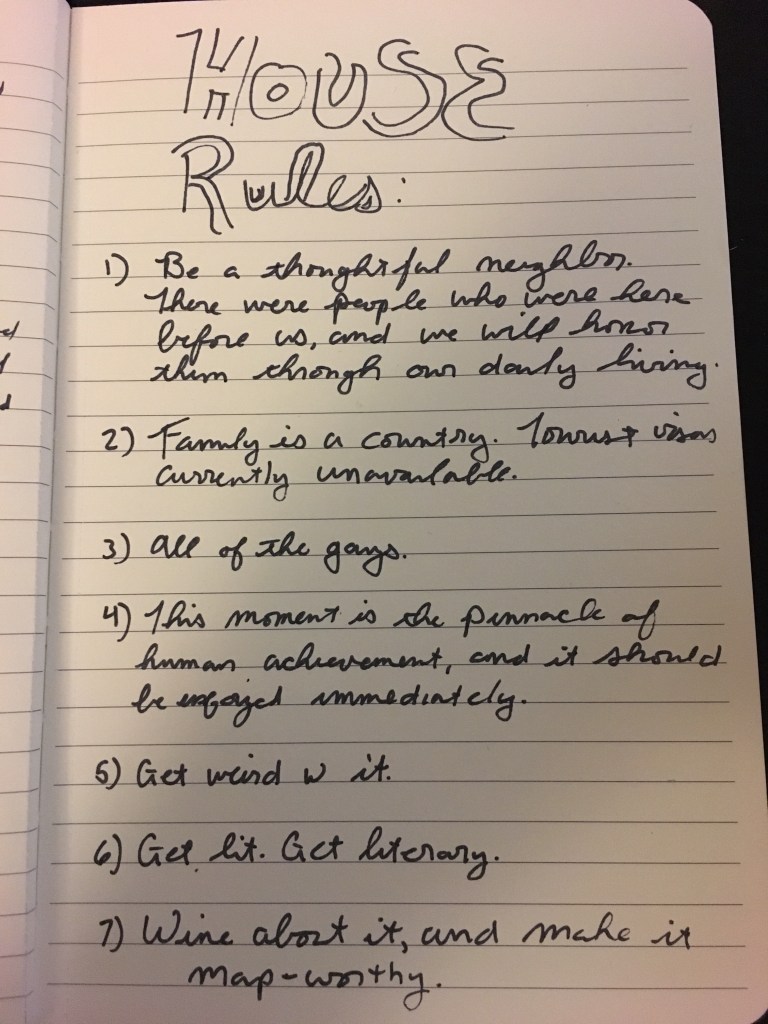 HOUSE
Rules:
1) Be a thoughtful neighbor.
There were people who were here
before us, and we will honor
them through our daily living.
2) Family is a country. Tourist visas
currently unavailable.
3) All of the gays.
4) This moment is the pinnacle of
human achievement, and it should
be enjoyed immediately.
5) Get weird w it.
6) Get lit. Get literary.
7) Wine about it, and make it
map-worthy.